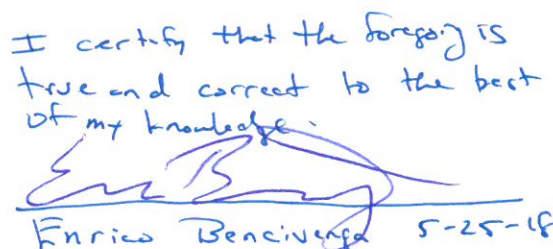 I certify that the foregoing is
true and correct to the best
of my knowledge.
Enrico Bencivenga 5-25-18